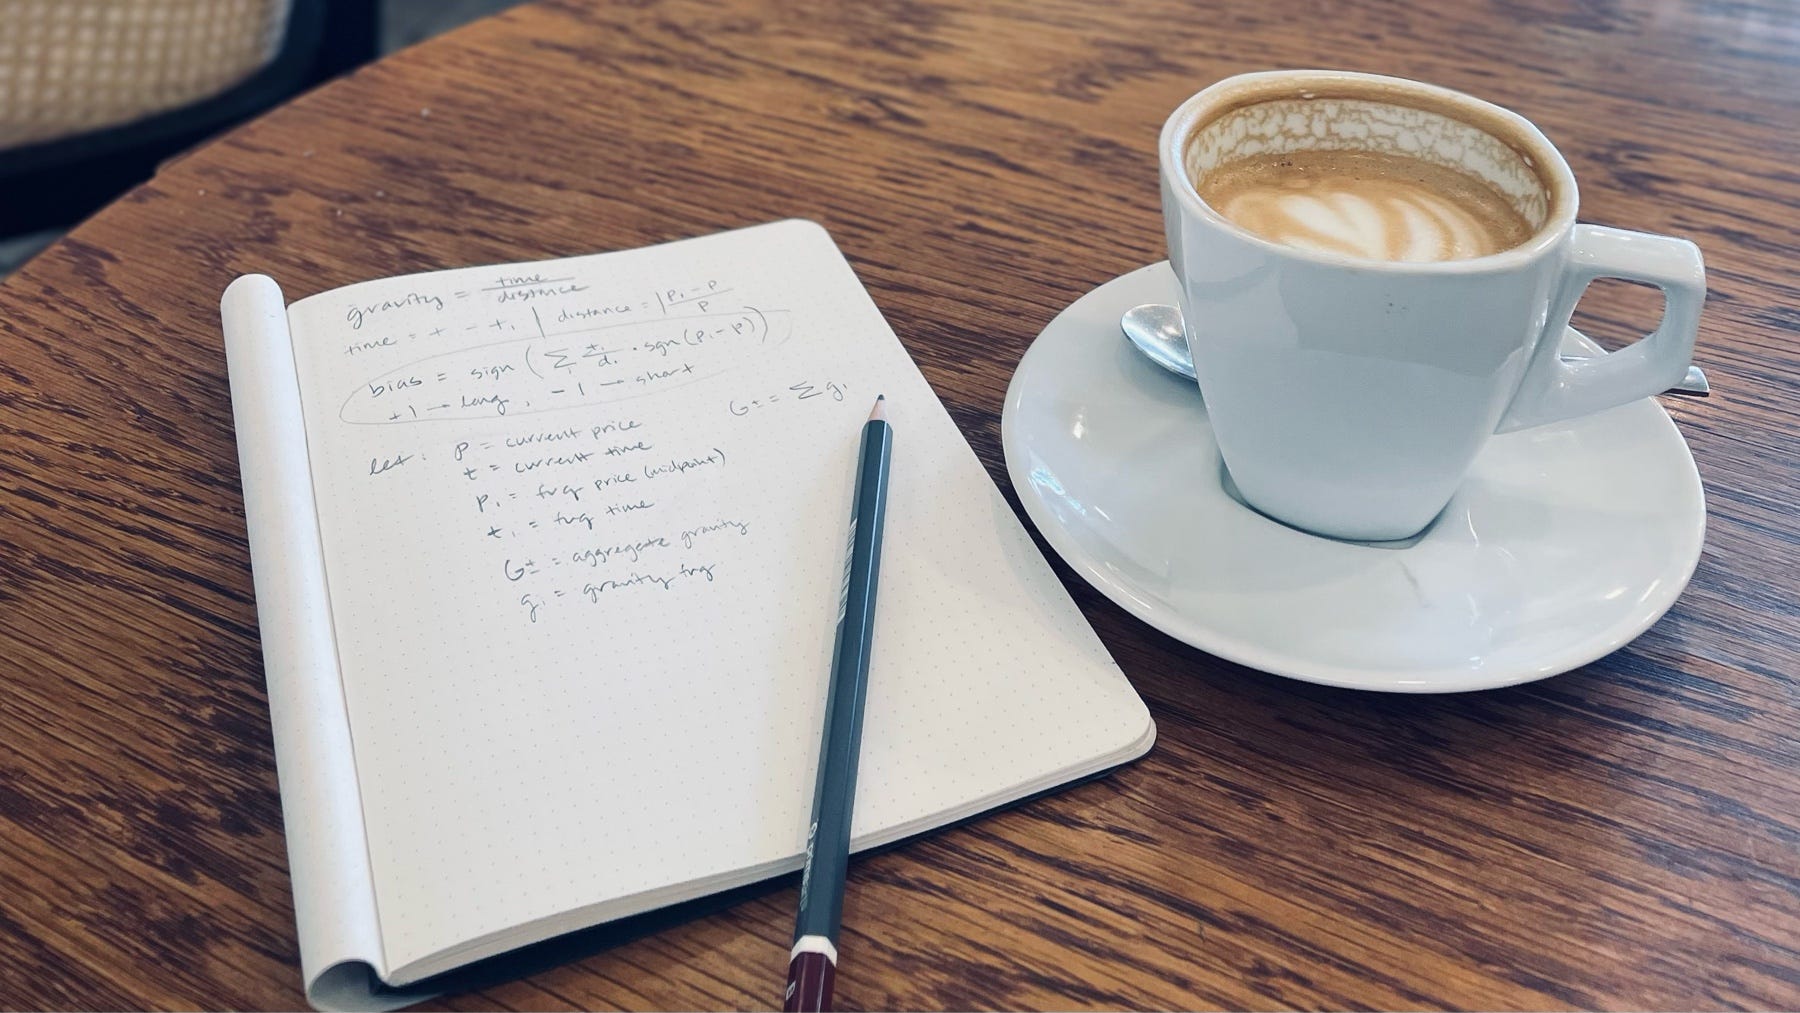 gravity = time / distance
time = t - t₁ | distance = |p₁ - p / p
bias = sign (∑ᵢ tᵢ/dᵢ · sgn (pᵢ - p))
+1 → long, -1 → short
G± = ∑ gᵢ
let: p = current price
t = current time
pᵢ = fvg price (midpoint)
tᵢ = fvg time
G± = aggregate gravity
gᵢ = gravity fvg